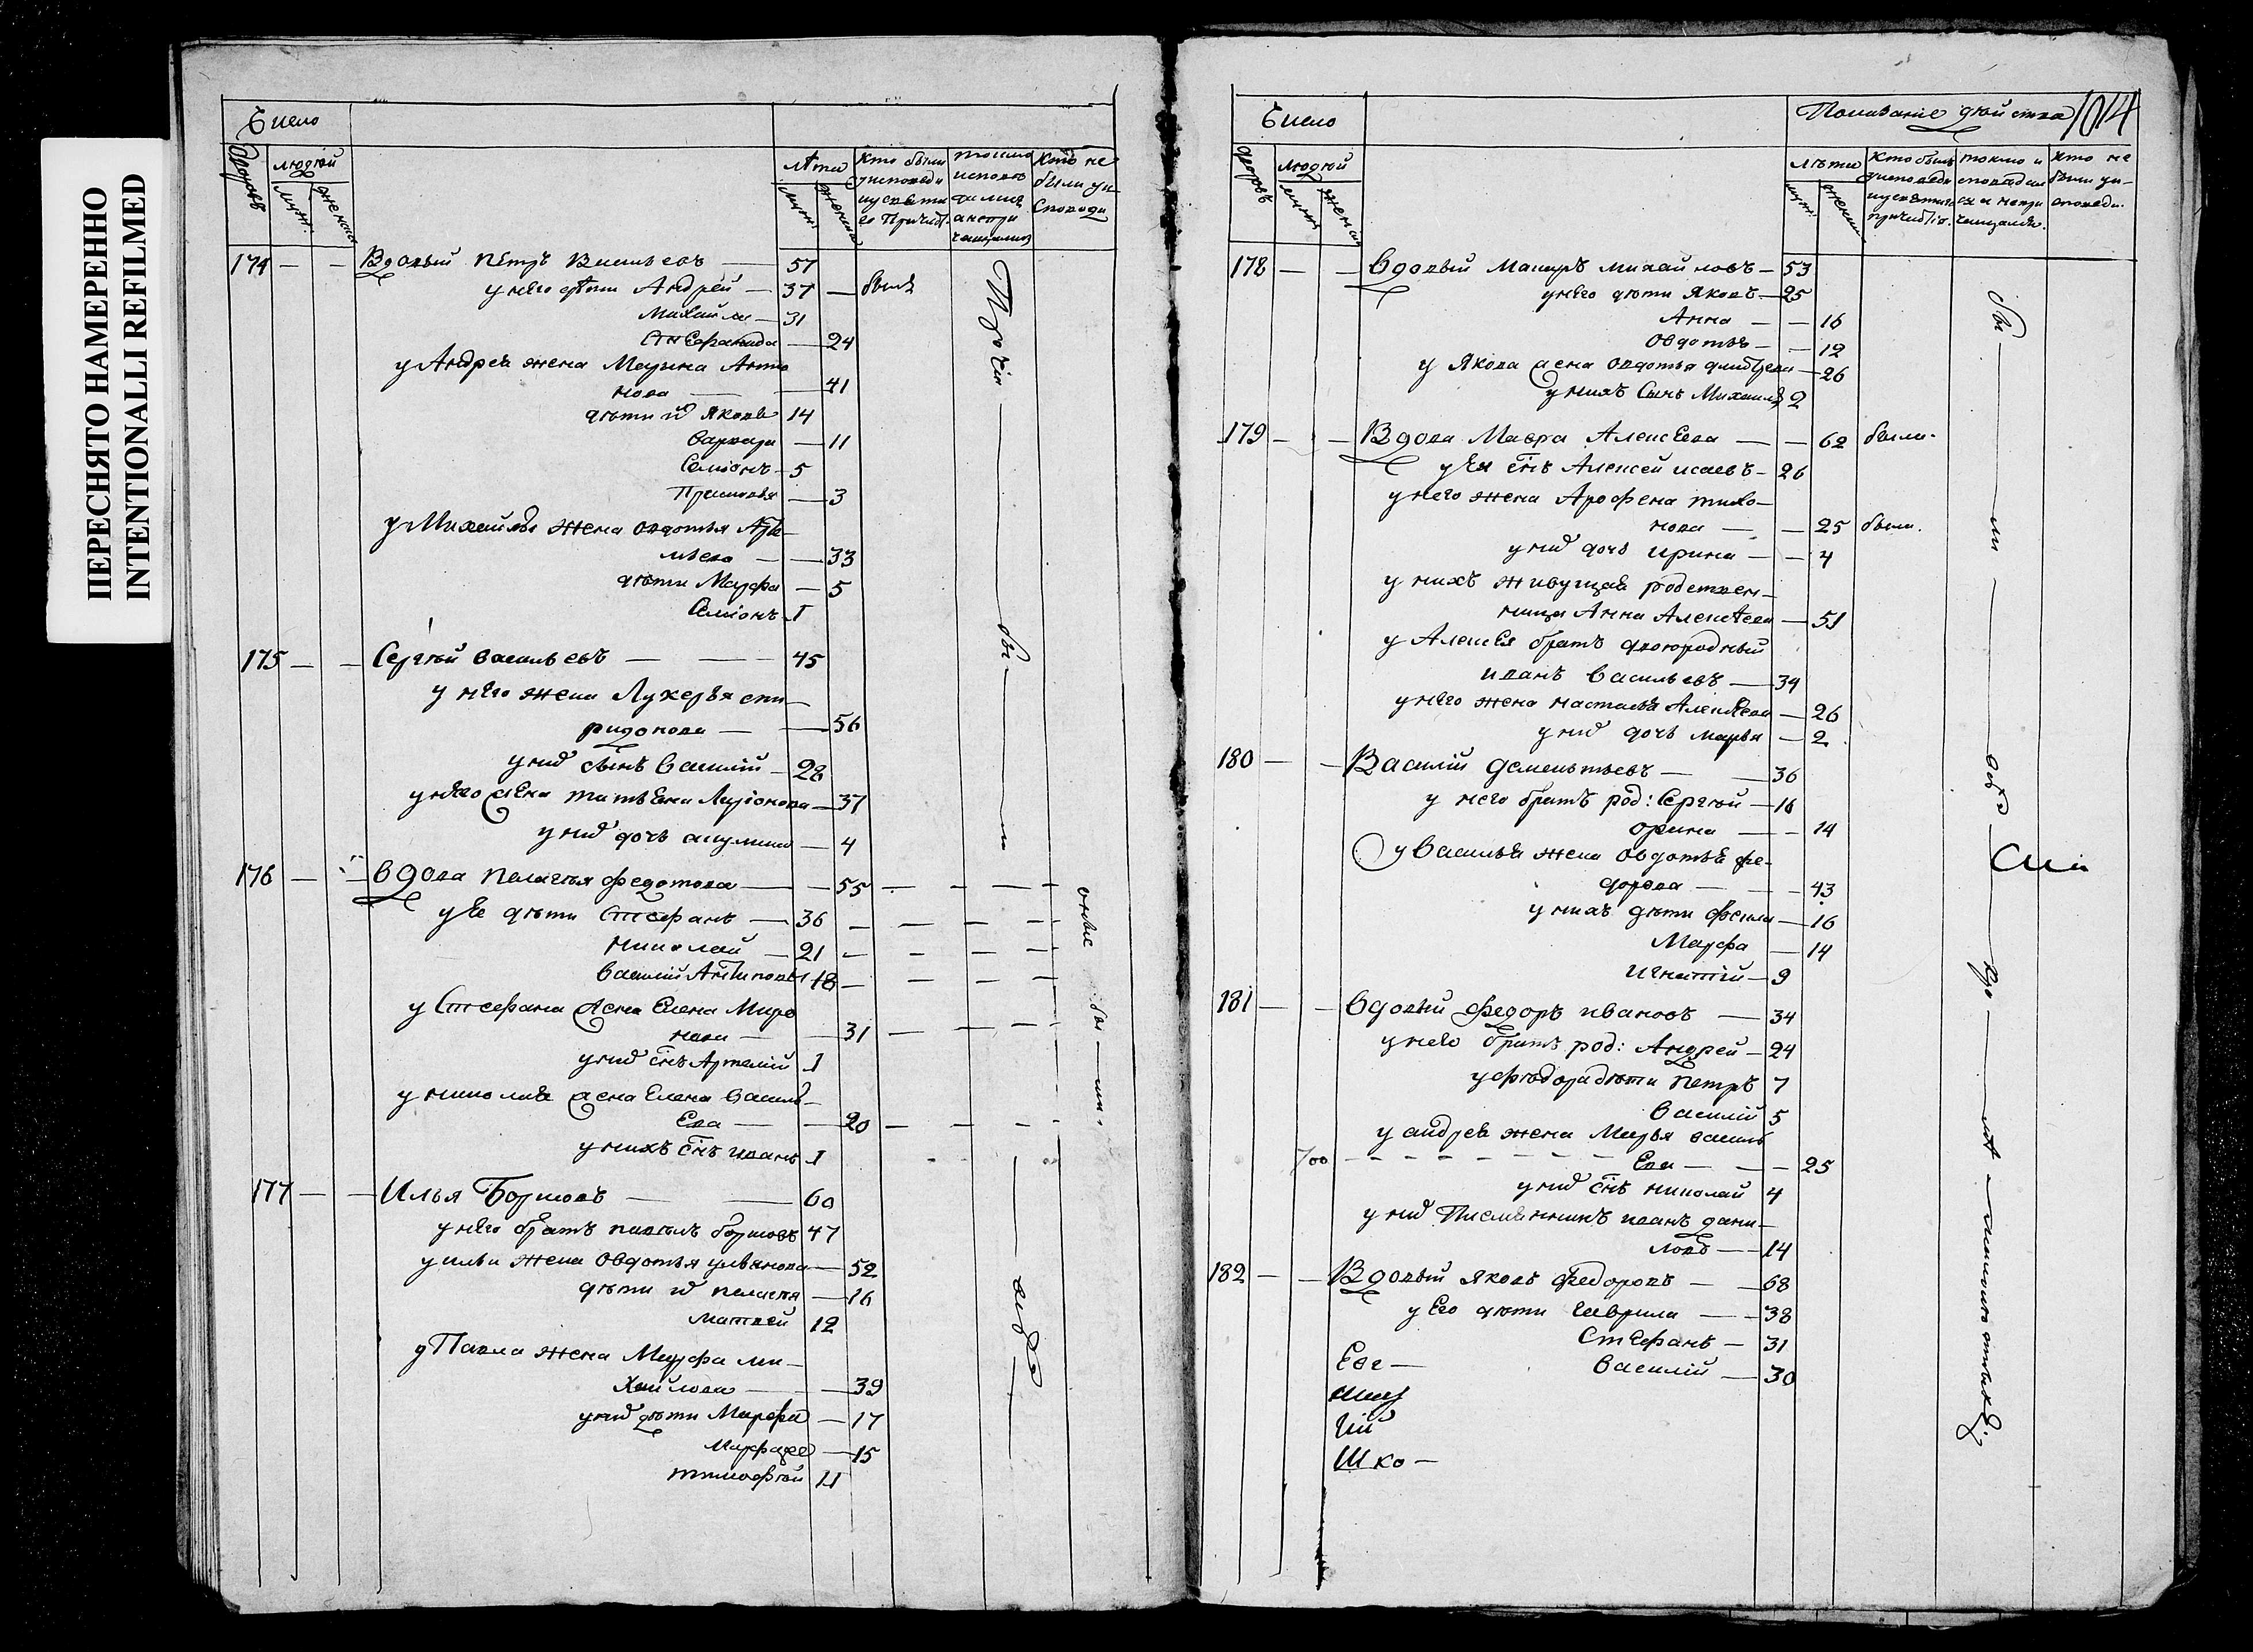 ПЕРЕСНЯТО НАМЕРЕННО
INTENTIONALLI REFILMED
Число
дворовъ людей
муж. женска
лѣта
муж. женска
Кто были у исповеди и у святаго Причаст.
токмо исповѣдались а не причащались
Кто не были у исповеди
174 — — Вдовый Пётръ Васильевъ — 57
у него дѣти Андрей — 37 — были
Михайла — 31
Стефанида — 24
у Андрея жена Марина Анто
нова — 41
дѣти ихъ Яковъ 14
Варвара — 11
Семіонъ — 5
Прасковья — 3
у Михайлы жена Овдотья
33
дѣти Марфа — 5
Семіонъ 1
Прочіи — бы — ли
175 — — Сергѣй Васильевъ — 45
у него жена Лукерья спи—
ридонова — 56
у них сынъ Василій — 28
у него жена Татьяна Ларіонова — 37
у них дочь акулина — 4
176 — — Вдова Пелагея Федотова — 55 — — — —
у Ее дѣти Стефанъ — 36 — — — —
Николай — 21 — — — —
Василій Антиповы 18 — — — —
у Стефана жена Елена Миро
нова — 31 — — —
у них снъ Артемій 1
у Николая жена Елена Василь—
Ева — 20 — — —
у нихъ снъ иванъ 1
бы — ли
177 — — Илья Борисовъ — 60
у него братъ павелъ борисовъ 47
у ильи жена Овдотья ульянова — 52
дѣти их пелагея — 16
Матвей 12
у Павла жена Марфа ми—
хайлова — 39
у них дѣти Марфа — 17
15
тимофѣй 11
Число
Показаніе дѣйства 1014
дворовъ людей
муж женск
лѣта
муж. женск
Кто были у исповеди и у святаго причастія.
токмо исповедались а не причащались.
Кто не были у исповеди.
178 — — Вдовый Михайловъ — 53
у него дѣти Яковъ — 25
Анна — — 16
Овдотья — — 12
у Якова жена Овдотья — 26
у нихъ Сынъ Михаилъ 2
179 — — Вдова Мавра АлексЕева — — 62 были.
у Ея снъ Алексей исаевъ — 26
у него жена Арофена тихо—
нова — — 25 были.
у них дочь ирина — — 4
у нихъ живущая родствен—
ница Анна Алексѣева — 51
у АлексЕя братъ двоюродный
иванъ Васильевъ — 34
у него жена настасья Алексѣева — 26
у них дочь марья — 2
180 — — Василій Дементьевъ — 36
у него братъ род: Сергѣй — 16
орина — — 14
у Василья жена Овдотья фе—
дорова — — 43
у нихъ дѣти — 16
Марфа — 14
Игнатій — 9
181 — — Вдовый Федоръ ивановъ — 34
у него братъ род: Андрей — 24
у фѣдора дѣти петръ 7
Василій 5
у андрея жена Марья василь
700 — — — — — — — Ева — — 25
у них снъ николай 4
у них иванъ дани—
ловъ — 14
182 — — Вдовый яковъ федоровъ — 68
у Его дѣти Гаврила — 38
Стефанъ — 31
Василій — 30
бы — ли
Сій
Еве —
ній
Шко —